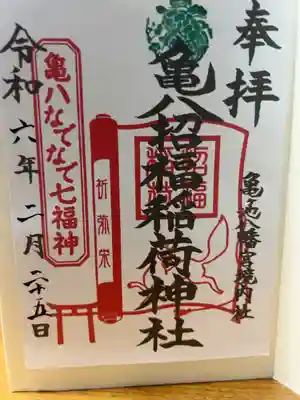 奉拝
亀ヶ池八幡宮境内社
亀八招福稲荷神社
招福
祈弥栄
亀八なでなで七福神
令和六年二月二十五日